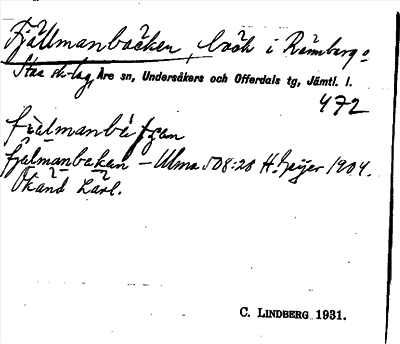 Fjällmanbäcken, bäck i Rännberg o
Staa sk-lag, Åre sn, Undersåkers och Offerdals tg, Jämtl. l.
472
fjälmanbakan – Ulma 508:20 H. Geijer 1904.
Okänd Lärl.
C. LINDBERG 1931.